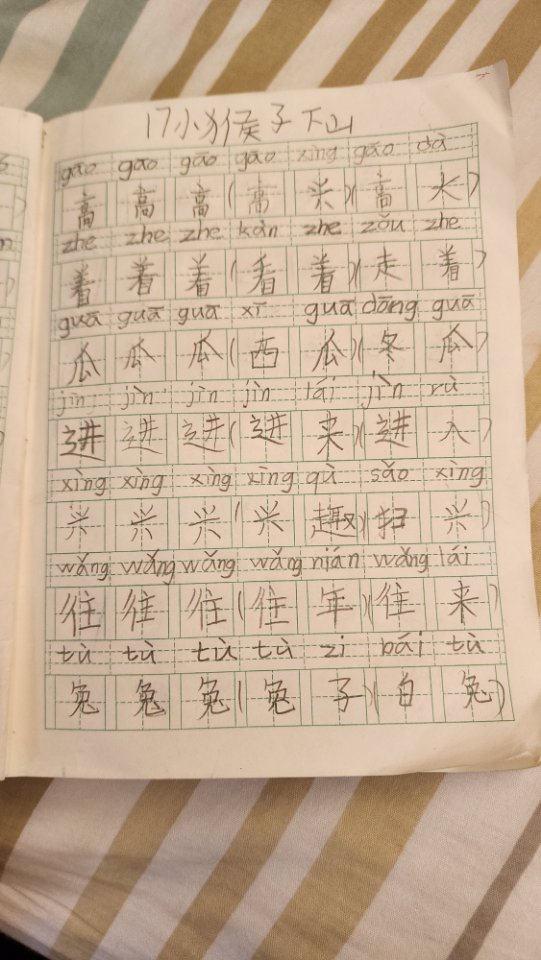 17小猴子下山
gāo gāo gāo gāo xìng gāo dà
高 高 高(高 兴)(高 大)
zhe zhe zhe kàn zhe zǒu zhe
着 着 着(看 着)(走 着)
guā guā guā xī guā dōng guā
瓜 瓜 瓜(西 瓜)(冬 瓜)
jìn jìn jìn jìn lái jìn rù
进 进 进(进 来)(进 入)
xìng xìng xìng xìng qù sǎo xìng
兴 兴 兴(兴 趣)(扫 兴)
wǎng wǎng wǎng wǎng nián wǎng lái
往 往 往(往 年)(往 来)
tù tù tù tù zi bái tù
兔 兔 兔(兔 子)(白 兔)